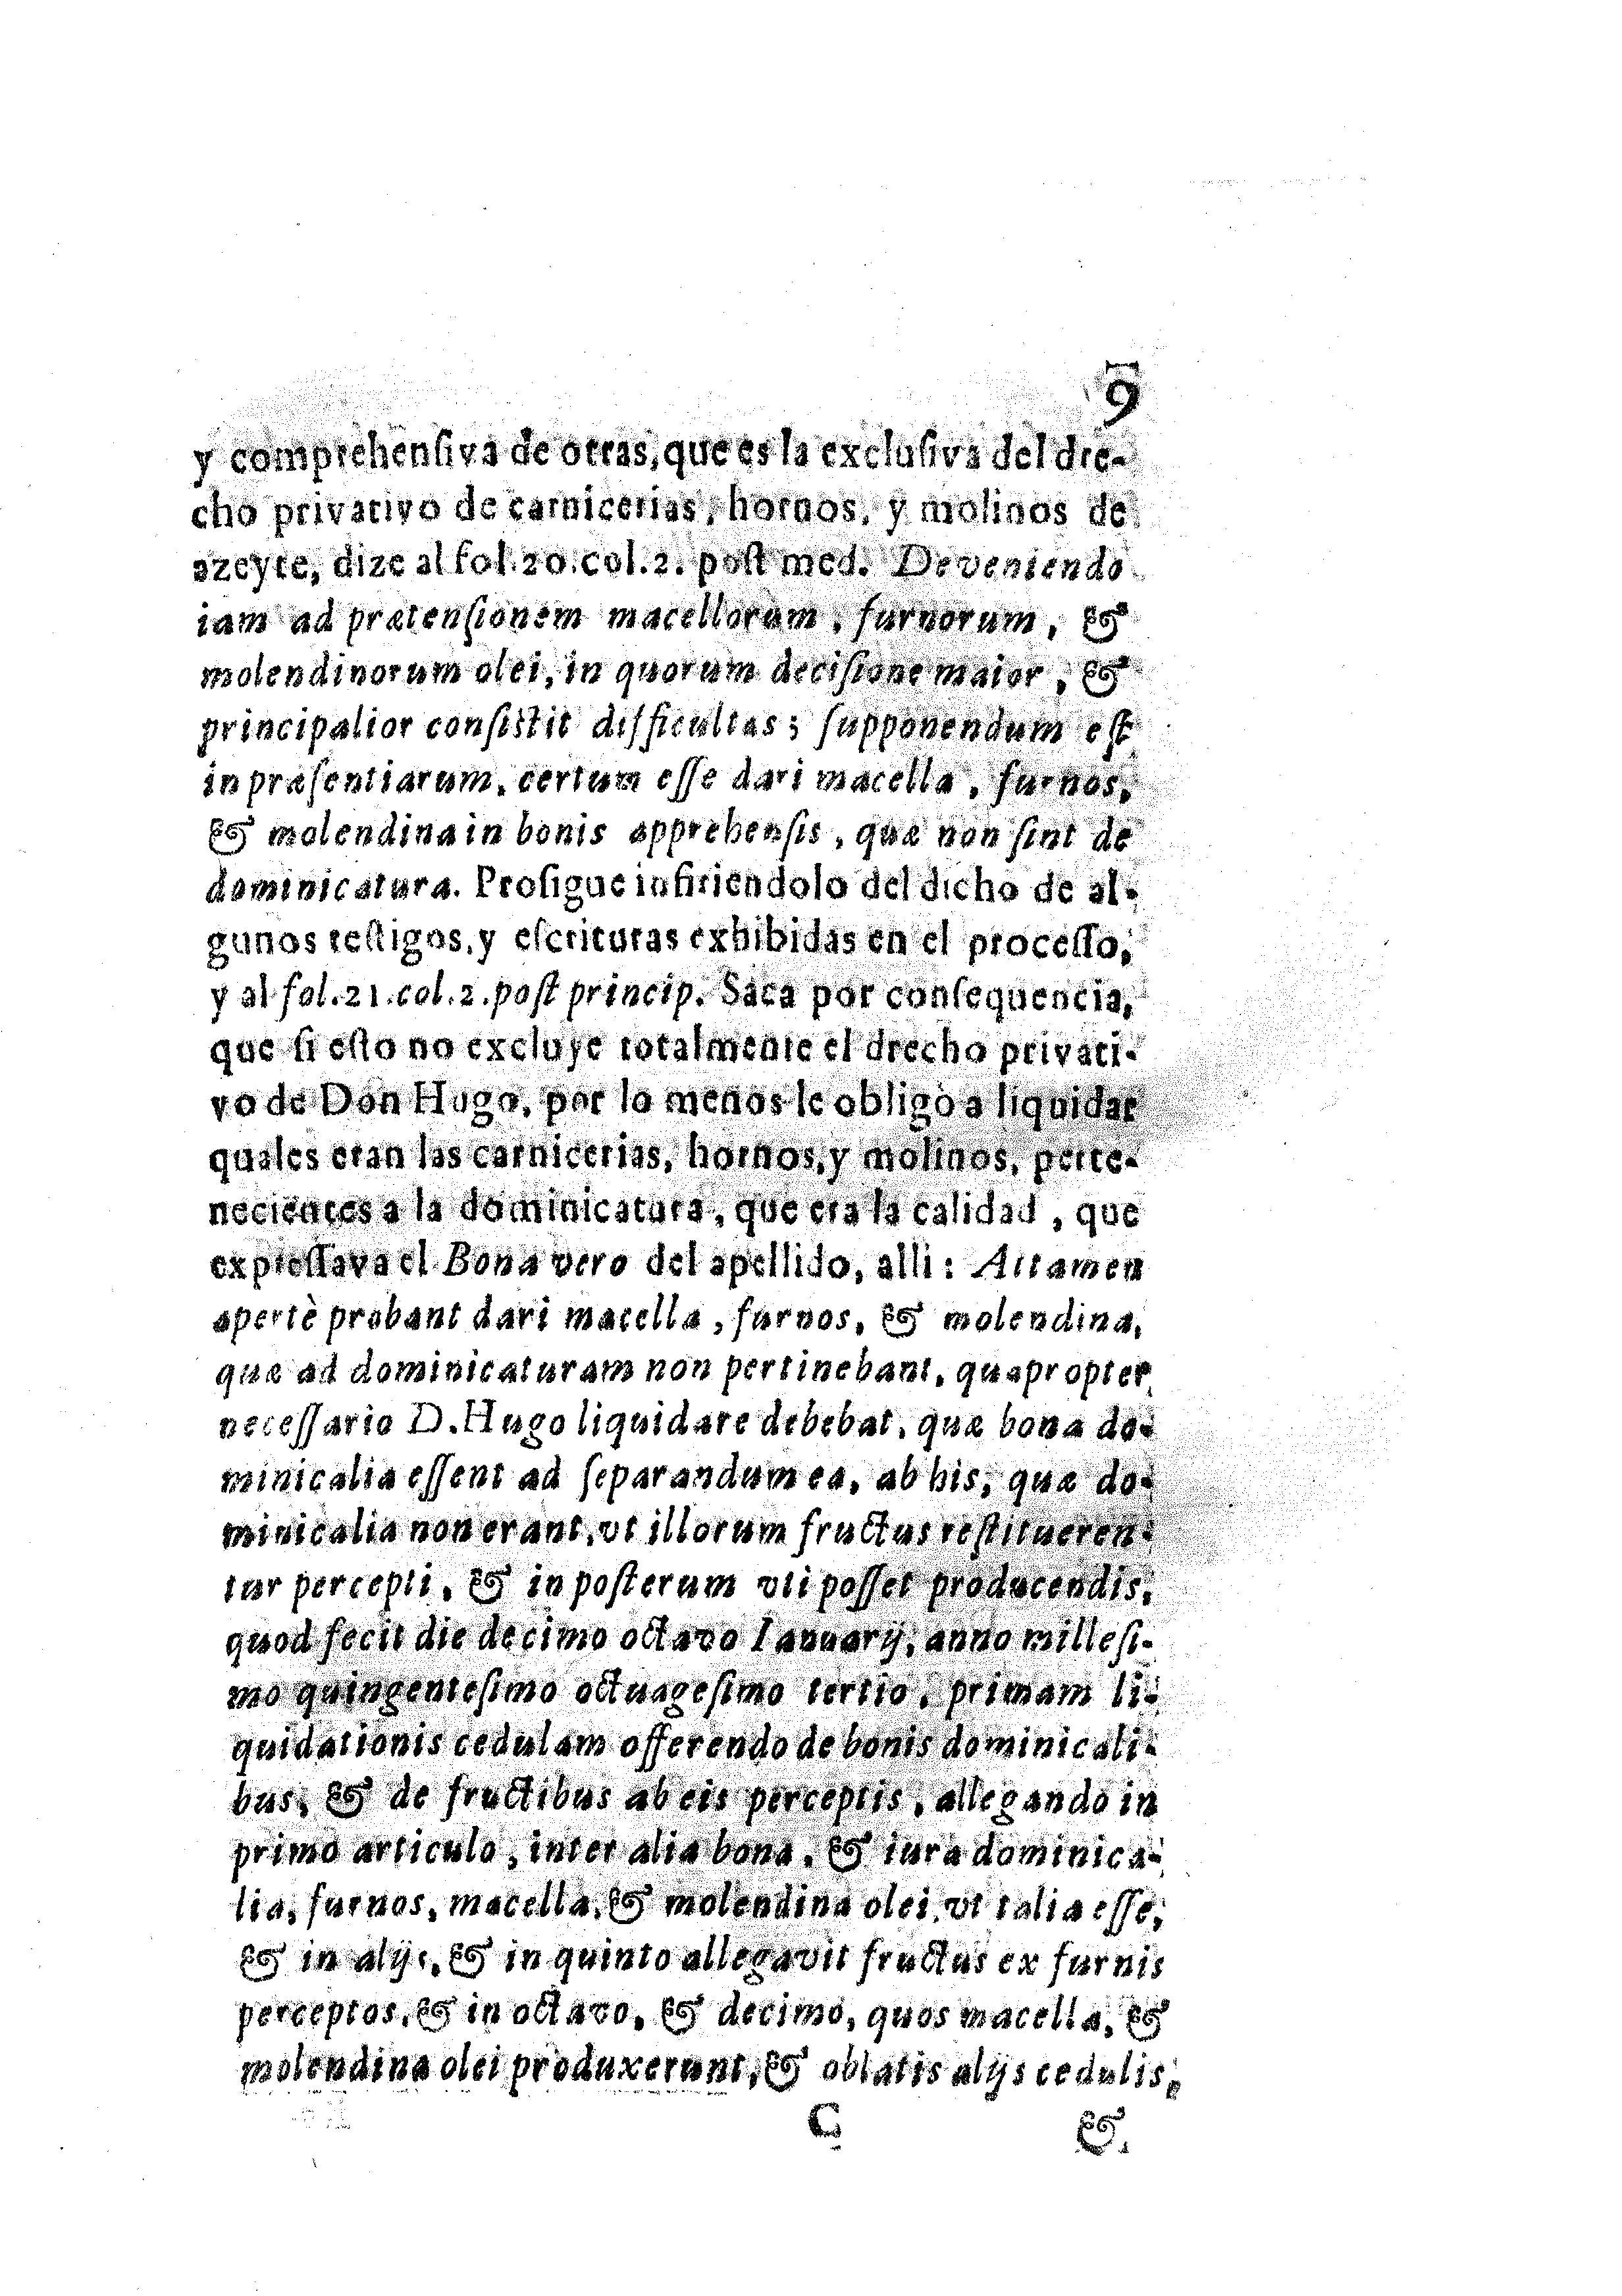 9
y comprehensiva de otras, que es la exclusiva del dre-
cho privativo de carnicerias, hornos, y molinos de
azeyte, dize al fol.20.col.2. post med. Deveniendo
iam ad prætensionem macellorum, furnorum, &
molendinorum olei, in quorum decisione maior, &
principalior consistit difficultas; supponendum est
in præsentiarum, certum esse dari macella, furnos,
& molendina in bonis apprehensis, quæ non sint de
dominicatura. Prosigue infiriendolo del dicho de al-
gunos testigos, y escrituras exhibidas en el processo,
y al fol.21.col.2.post princip. Saca por consequencia,
que si esto no excluye totalmente el drecho privati-
vo de Don Hugo, por lo menos le obligò a liquidar
quales eran las carnicerias, hornos, y molinos, perte-
necientes a la dominicatura, que era la calidad, que
expressava el Bona vero del apellido, alli: Attamen
apertè probant dari macella, furnos, & molendina,
quæ ad dominicaturam non pertinebant, quapropter
necessario D.Hugo liquidare debebat, quæ bona do-
minicalia essent ad separandum ea, ab his, quæ do-
minicalia non erant, vt illorum fructus restitueren-
tur percepti, & in posterum vti posset producendis,
quod fecit die decimo octavo Ianuarij, anno millesi-
mo quingentesimo octuagesimo tertio, primam li-
quidationis cedulam offerendo de bonis dominicali-
bus, & de fructibus ab eis perceptis, allegando in
primo articulo, inter alia bona, & iura dominica-
lia, furnos, macella, & molendina olei, vt talia esse,
& in alijs, & in quinto allegavit fructus ex furnis
perceptos, & in octavo, & decimo, quos macella, &
molendina olei produxerunt, & oblatis alijs cedulis,
C &.